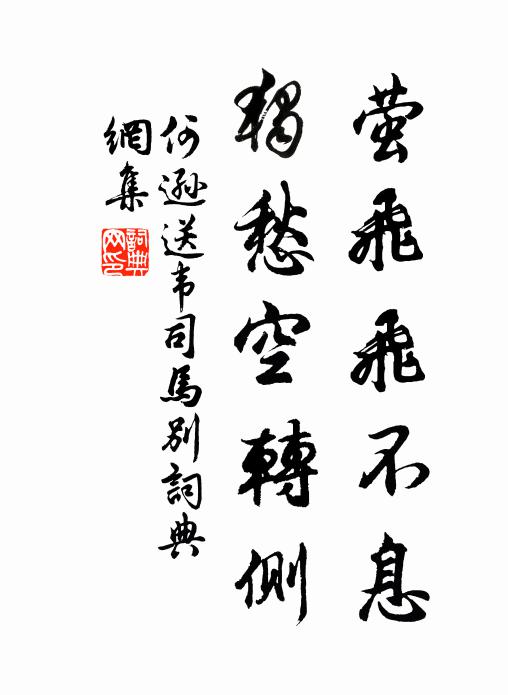 萤飛飛不息
獨愁空轉側
何遜送韦司馬别詞典
網集
詞典
网印